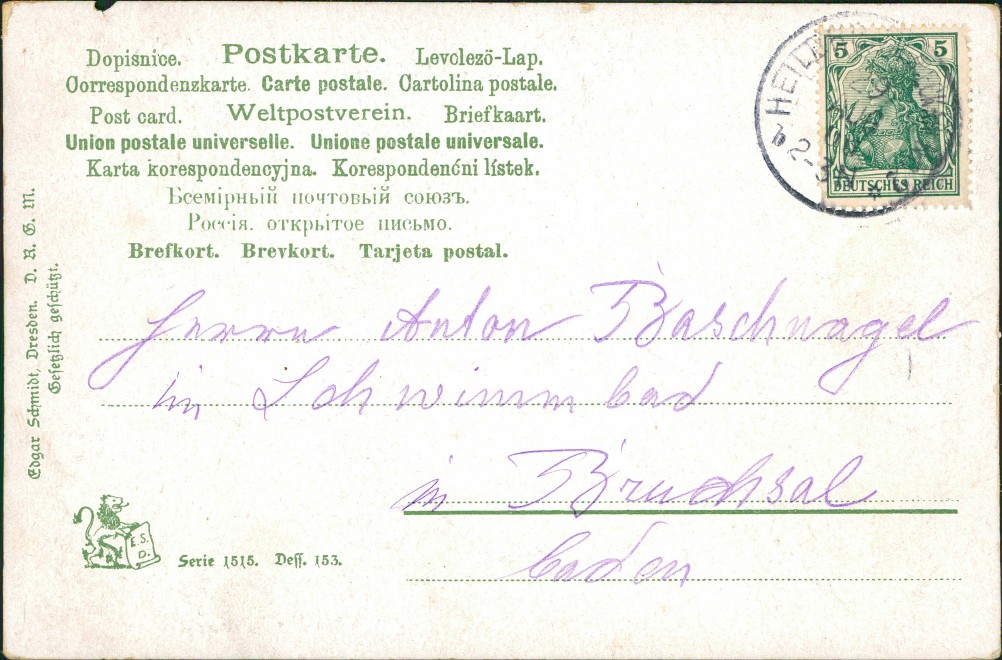 Dopisnice. Postkarte. Levelező-Lap.
Correspondenzkarte. Carte postale. Cartolina postale.
Post card. Weltpostverein. Briefkaart.
Union postale universelle. Unione postale universale.
Karta korespondencyjna. Korespondenčni lístek.
Всемірный почтовый союзъ.
Россія. открытое письмо.
Brefkort. Brevkort. Tarjeta postal.
5 5
DEUTSCHES REICH
HEIL
Herrn Anton Baschnagel
im Schwimmbad
in Bruchsal
Baden
Edgar Schmidt, Dresden. D. R. G. M.
Gesetzlich geschützt.
E. S.
D.
Serie 1515. Dess. 153.